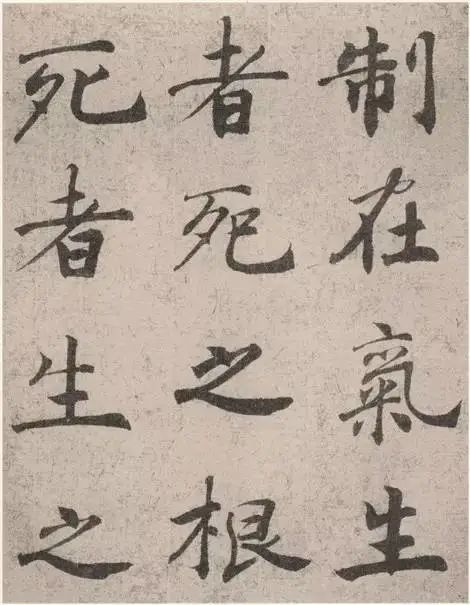 制在氣生
者死之根
死者生之